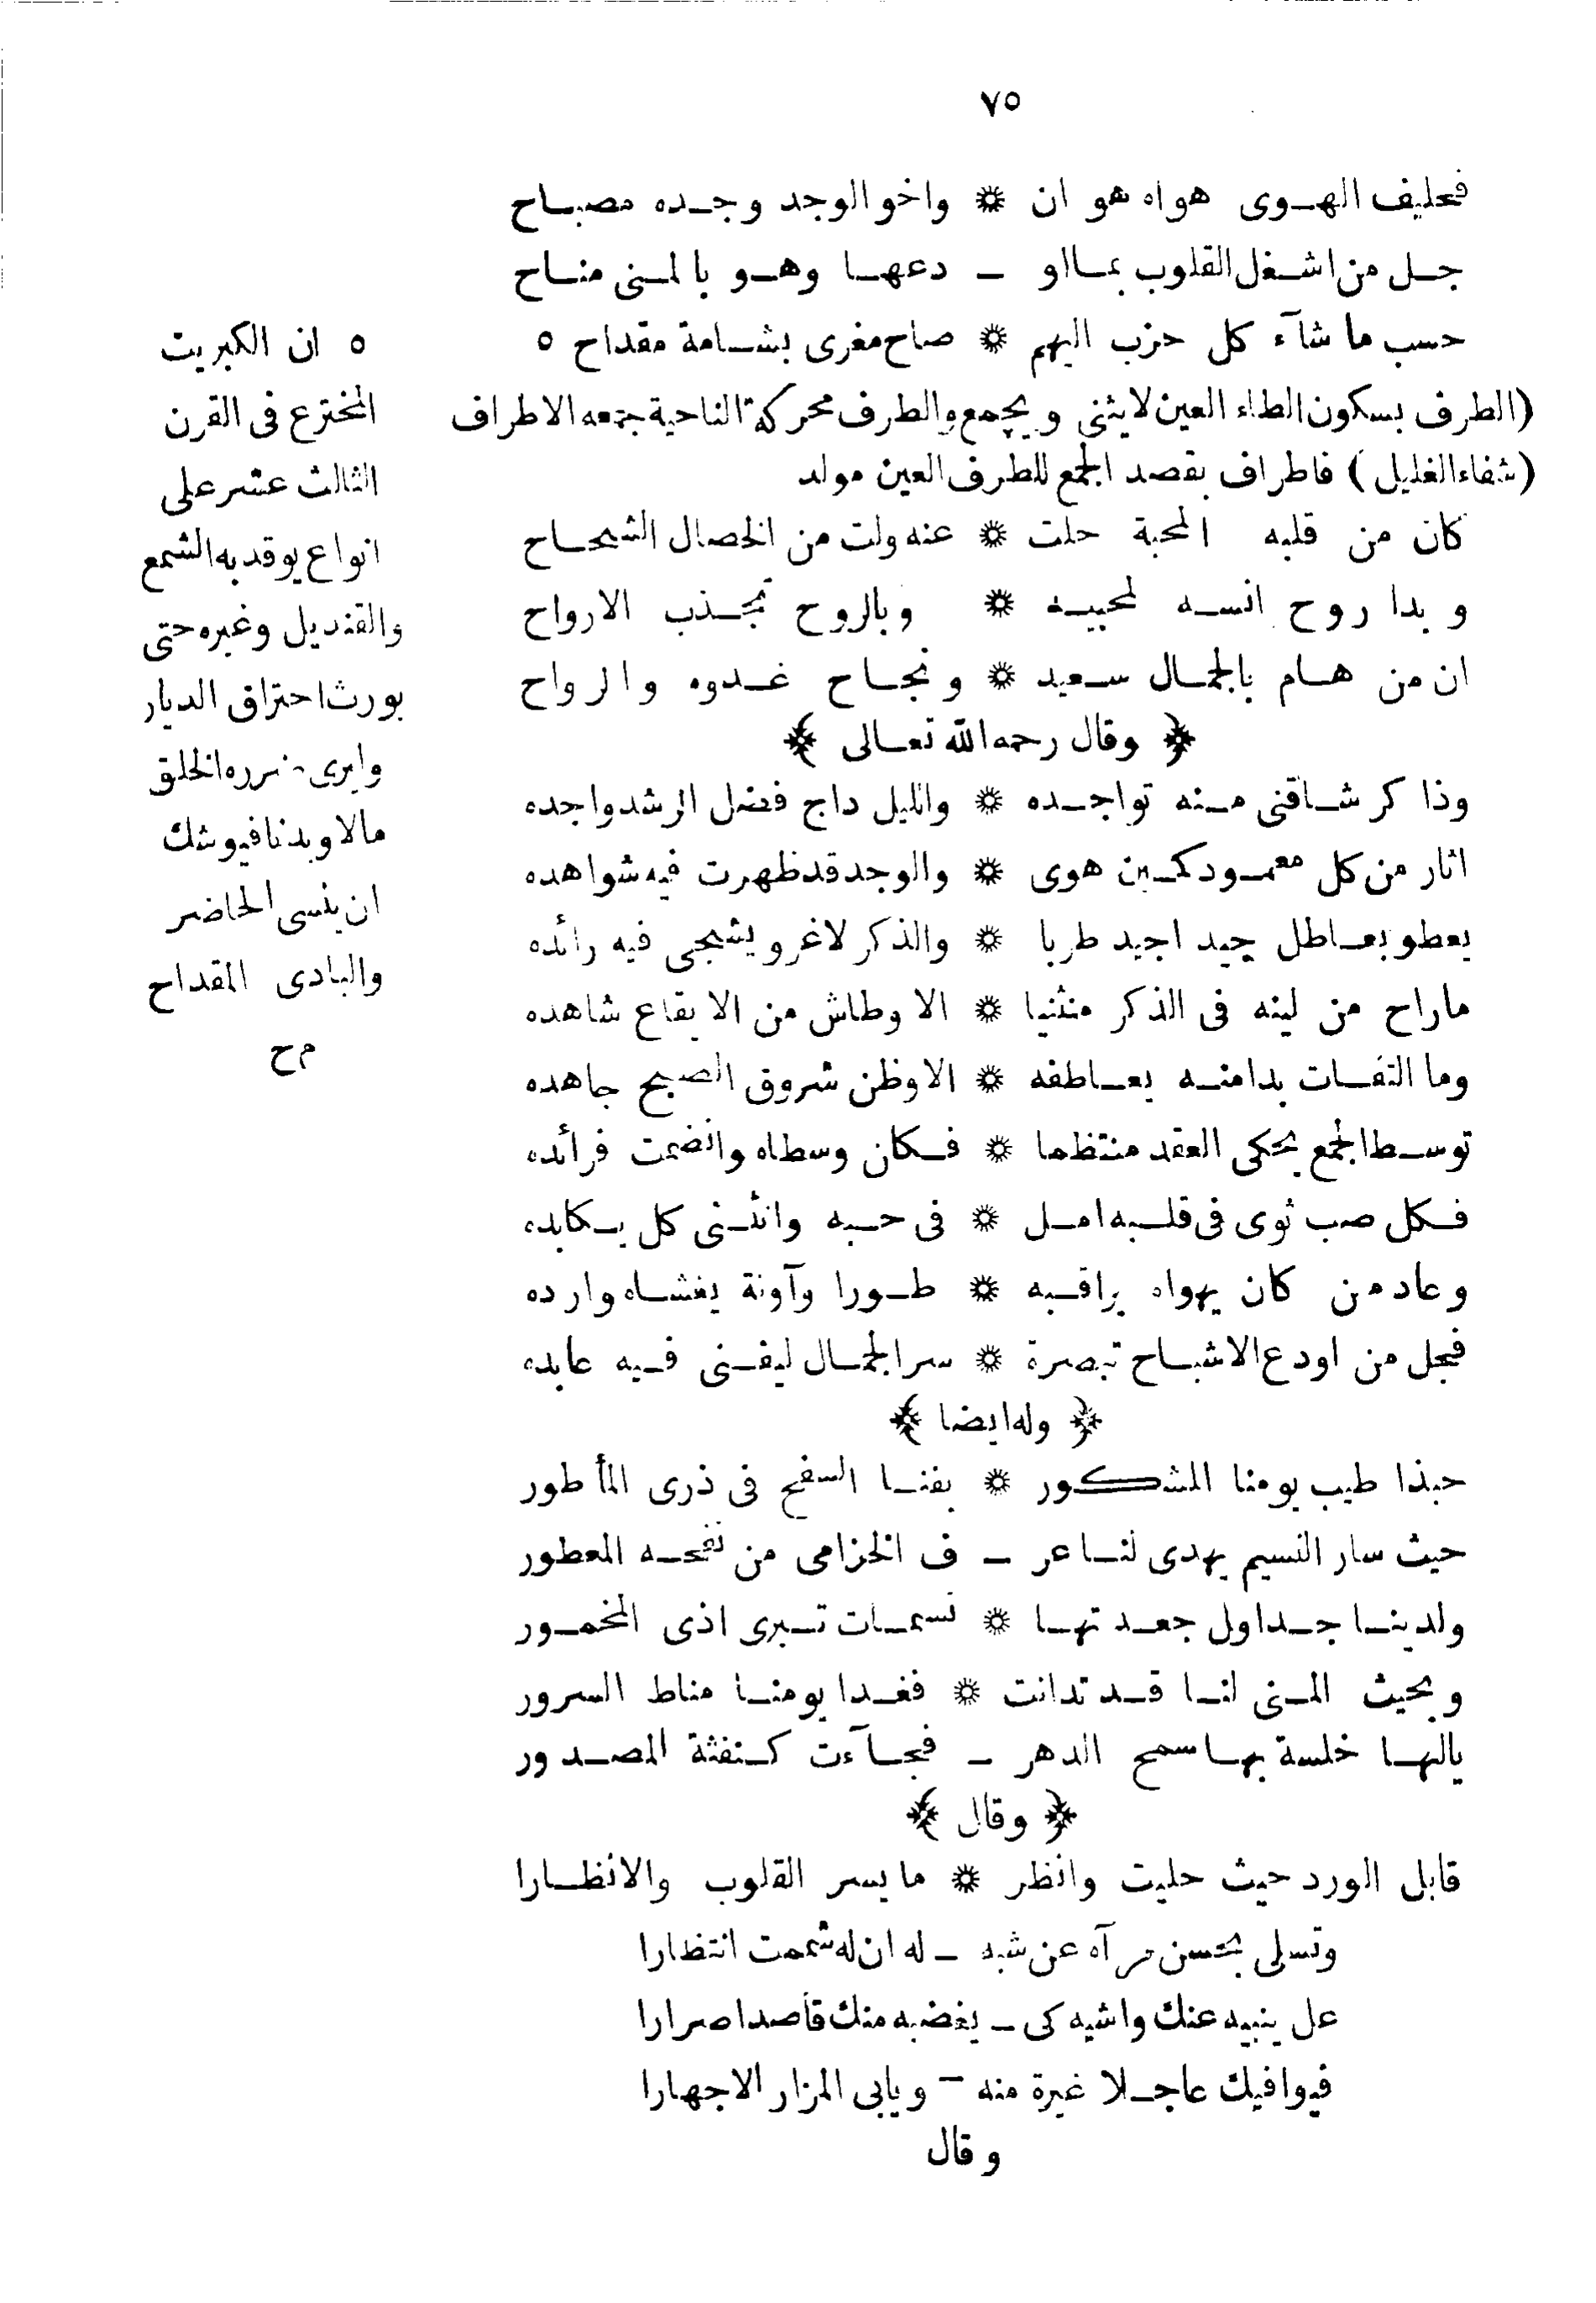 ٧٥
فحليف الهوى هواه هو ان * واخو الوجد وجده مصباح
جل من اشغل القلوب بما او – دعها وهو بالمنى مناح
حسب ما شآء كل حزب اليهم * صاح مغرى بشامة مقداح ٥
(الطرف بسكون الطاء العين لايثنى ويجمع والطرف محركة الناحية جمعه الاطراف
(شفاء الغليل) فاطراف بقصد الجمع للطرف العين مولد
كان من قلبه المحبة حلت * عنه ولت من الخصال الشحاح
وبدا روح انسه لمحبيه * وبالروح تجذب الارواح
ان من هام بالجمال سعيد * ونجاح غدوه والرواح
﴿ وقال رحمه الله تعالى ﴾
وذاكر شاقنى منه تواجده * والليل داج فضل الرشد واجده
اثار من كل معمود كمين هوى * والوجد قد ظهرت فيه شواهده
يعطو بعاطل جيد اجيد طربا * والذكر لاغرو يشجى فيه رائده
ماراح من لينه فى الذكر منثنيا * الا وطاش من الايقاع شاهده
وما التفات بدا منه بعاطفه * الا وظن شروق الصبح جاهده
توسط الجمع يحكى العقد منتظما * فكان وسطاه وانضمت فرائده
فكل صب ثوى فى قلبه امل * فى حبه وانثنى كل يكابده
وعاد من كان يهواه يراقبه * طورا وآونة يغشاه وارده
فجل من اودع الاشباح تبصرة * سر الجمال ليفنى فيه عابده
﴿ وله ايضا ﴾
حبذا طيب يومنا المشكور * بفنا السفح فى ذرى المأطور
حيث سار النسيم يهدى لنا عر – ف الخزامى من نفحه المعطور
ولدينا جداول جعدتها * نسمات تبرى اذى المخمور
وبحيث المنى لنا قد تدانت * فغدا يومنا مناط السرور
يالها خلسة بها سمح الدهر – فجآءت كنفثة المصدور
﴿ وقال ﴾
قابل الورد حيث حليت وانظر * مايسر القلوب والانظارا
وتسلى بحسن مرآه عن شبه – له ان له شممت انتظارا
عل ينبيه عنك واشيه كى – يغضبه منك قاصدا صرارا
فيوافيك عاجلا غيرة منه – ويابى المزار الاجهارا
وقال
٥ ان الكبريت
المخترع فى القرن
الثالث عشر على
انواع يوقد به الشمع
والقنديل وغيره حتى
يورث احتراق الديار
وايرى ضرره الخلق
مالا وبدنا فيوشك
ان ينسى الحاضر
والبادى المقداح
م ح